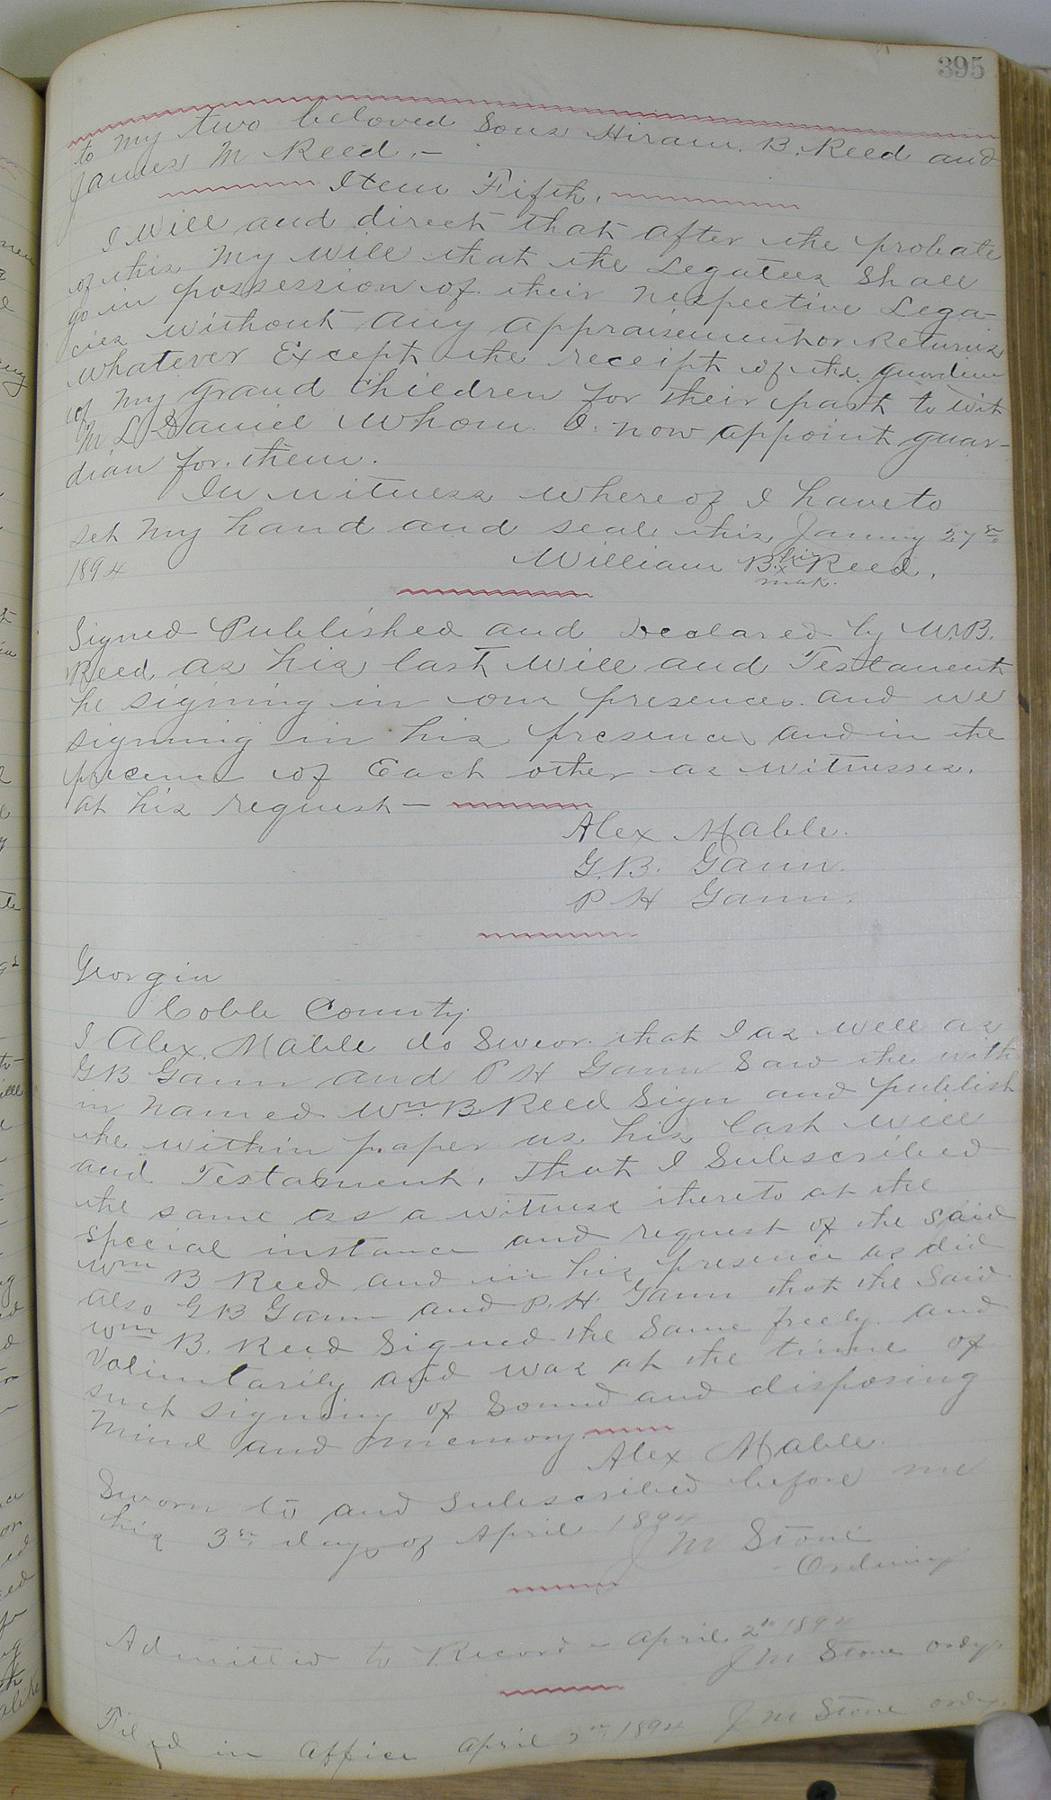 395
to my two beloved Sons Hiram. B. Reed and
James M Reed. -
Item Fifth.
I will and direct that after the probate
of this My Will that the Legatees Shall
go in possession of their respective Lega-
cies without any appraisement or Returns
whatever Except the receipt of the guardian
of my Grand Children for their part to wit
M L Daniel whom I now appoint guar-
dian for them.
In witness whereof I have to
set My hand and seal this January 27th
1894 William B. his x mark Reed.
Signed Published and Declared by W.B.
Reed as his last Will and Testament
he signing in our presences and we
signing in his presence and in the
presence of Each other as witnesses.
at his request —
Alex Mable.
G.B. Gann.
P H Gann.
Georgia
Cobb County.
I Alex. Mable do Swear that I as well as
GB Gann and P H Gann Saw the with
in named Wm B Reed Sign and publish
the within paper as his last will
and Testament, that I Subscribed
the same as a witness thereto at the
special instance and request of the said
Wm B Reed and in his presence as did
also GB Gann and P.H. Gann that the Said
Wm B. Reed Signed the Same freely and
Voluntarily and was at the time of
such signing of Sound and disposing
Mind and memory
Alex Mable.
Sworn to and Subscribed before me
this 3rd day of April 1894
J M Stone
Ordinary
Admitted to Record - April 2nd 1894
J M Stone ordy.
Filed in Office April 2nd 1894 J M Stone ordy.